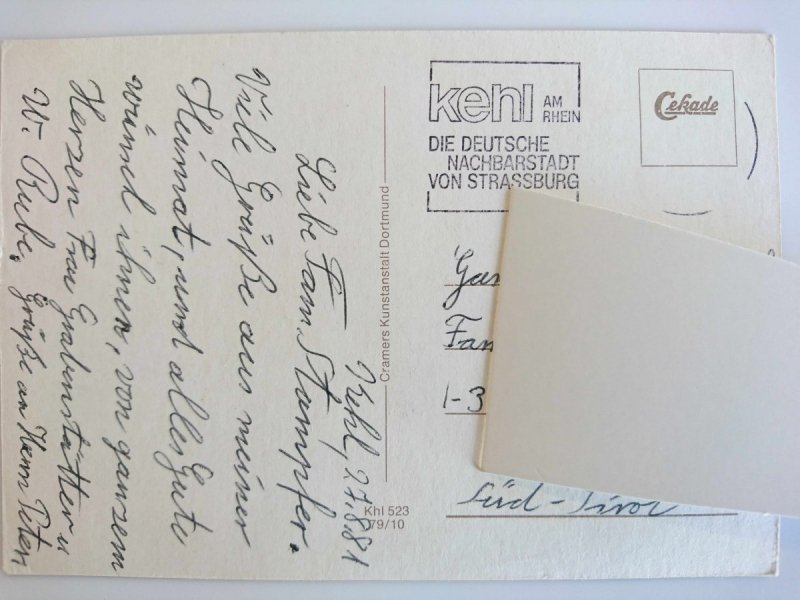 Kehl, 27.8.81
Liebe Fam. Stampfer.
Viele Grüße aus meiner
Heimat, und alles Gute
wünscht ihnen, von ganzem
Herzen Frau Grabenstätter u
W. Rube. Grüße an Herrn
Cramers Kunstanstalt Dortmund
Khl 523
79/10
kehl AM
RHEIN
DIE DEUTSCHE
NACHBARSTADT
VON STRASSBURG
Cekade
Fam
I-3
Süd-Tirol